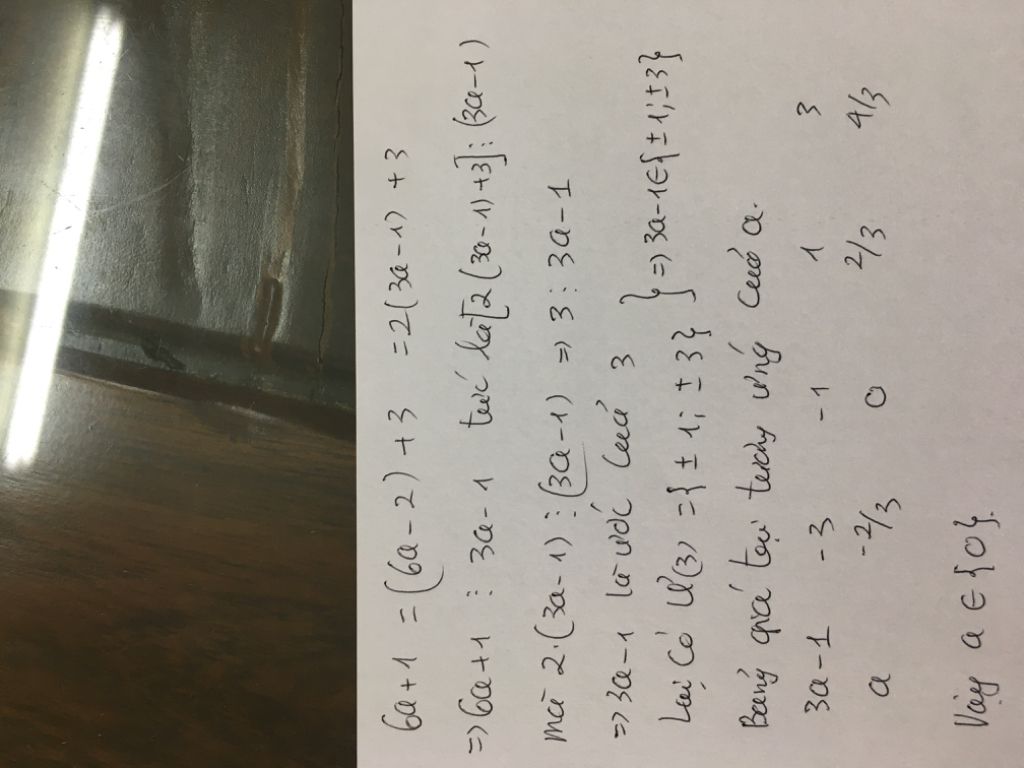 6a+1 = (6a-2)+3 = 2(3a-1)+3
=> 6a+1 ⋮ 3a-1 tức là [2(3a-1)+3] ⋮ (3a-1)
mà 2.(3a-1) ⋮ (3a-1) => 3 ⋮ 3a-1
=> 3a-1 là ước của 3
Lại có Ư(3) = {±1; ±3} } => 3a-1∈{±1; ±3}
Bảng giá trị tương ứng của a.
3a-1 -3 -1 1 3
a -2/3 0 2/3 4/3
Vậy a ∈ {0}.